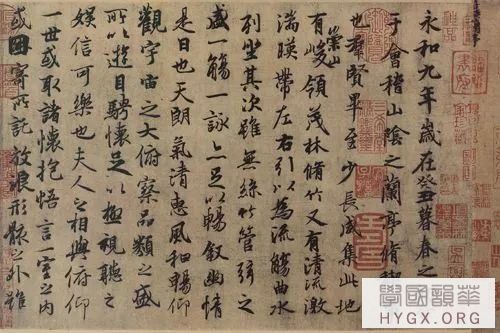 永和九年歲在癸丑暮春之
于會稽山陰之蘭亭脩禊
也群賢畢至少長咸集此地
有崇山峻領茂林脩竹又有清流激
湍暎帶左右引以為流觴曲水
列坐其次雖無絲竹管弦之
盛一觴一詠亦足以暢敘幽情
是日也天朗氣清惠風和暢仰
觀宇宙之大俯察品類之盛
所以遊目騁懷足以極視聽之
娛信可樂也夫人之相與俯仰
一世或取諸懷抱悟言一室之內
或因寄所託放浪形骸之外雖
學國韻華
HYGX.NET